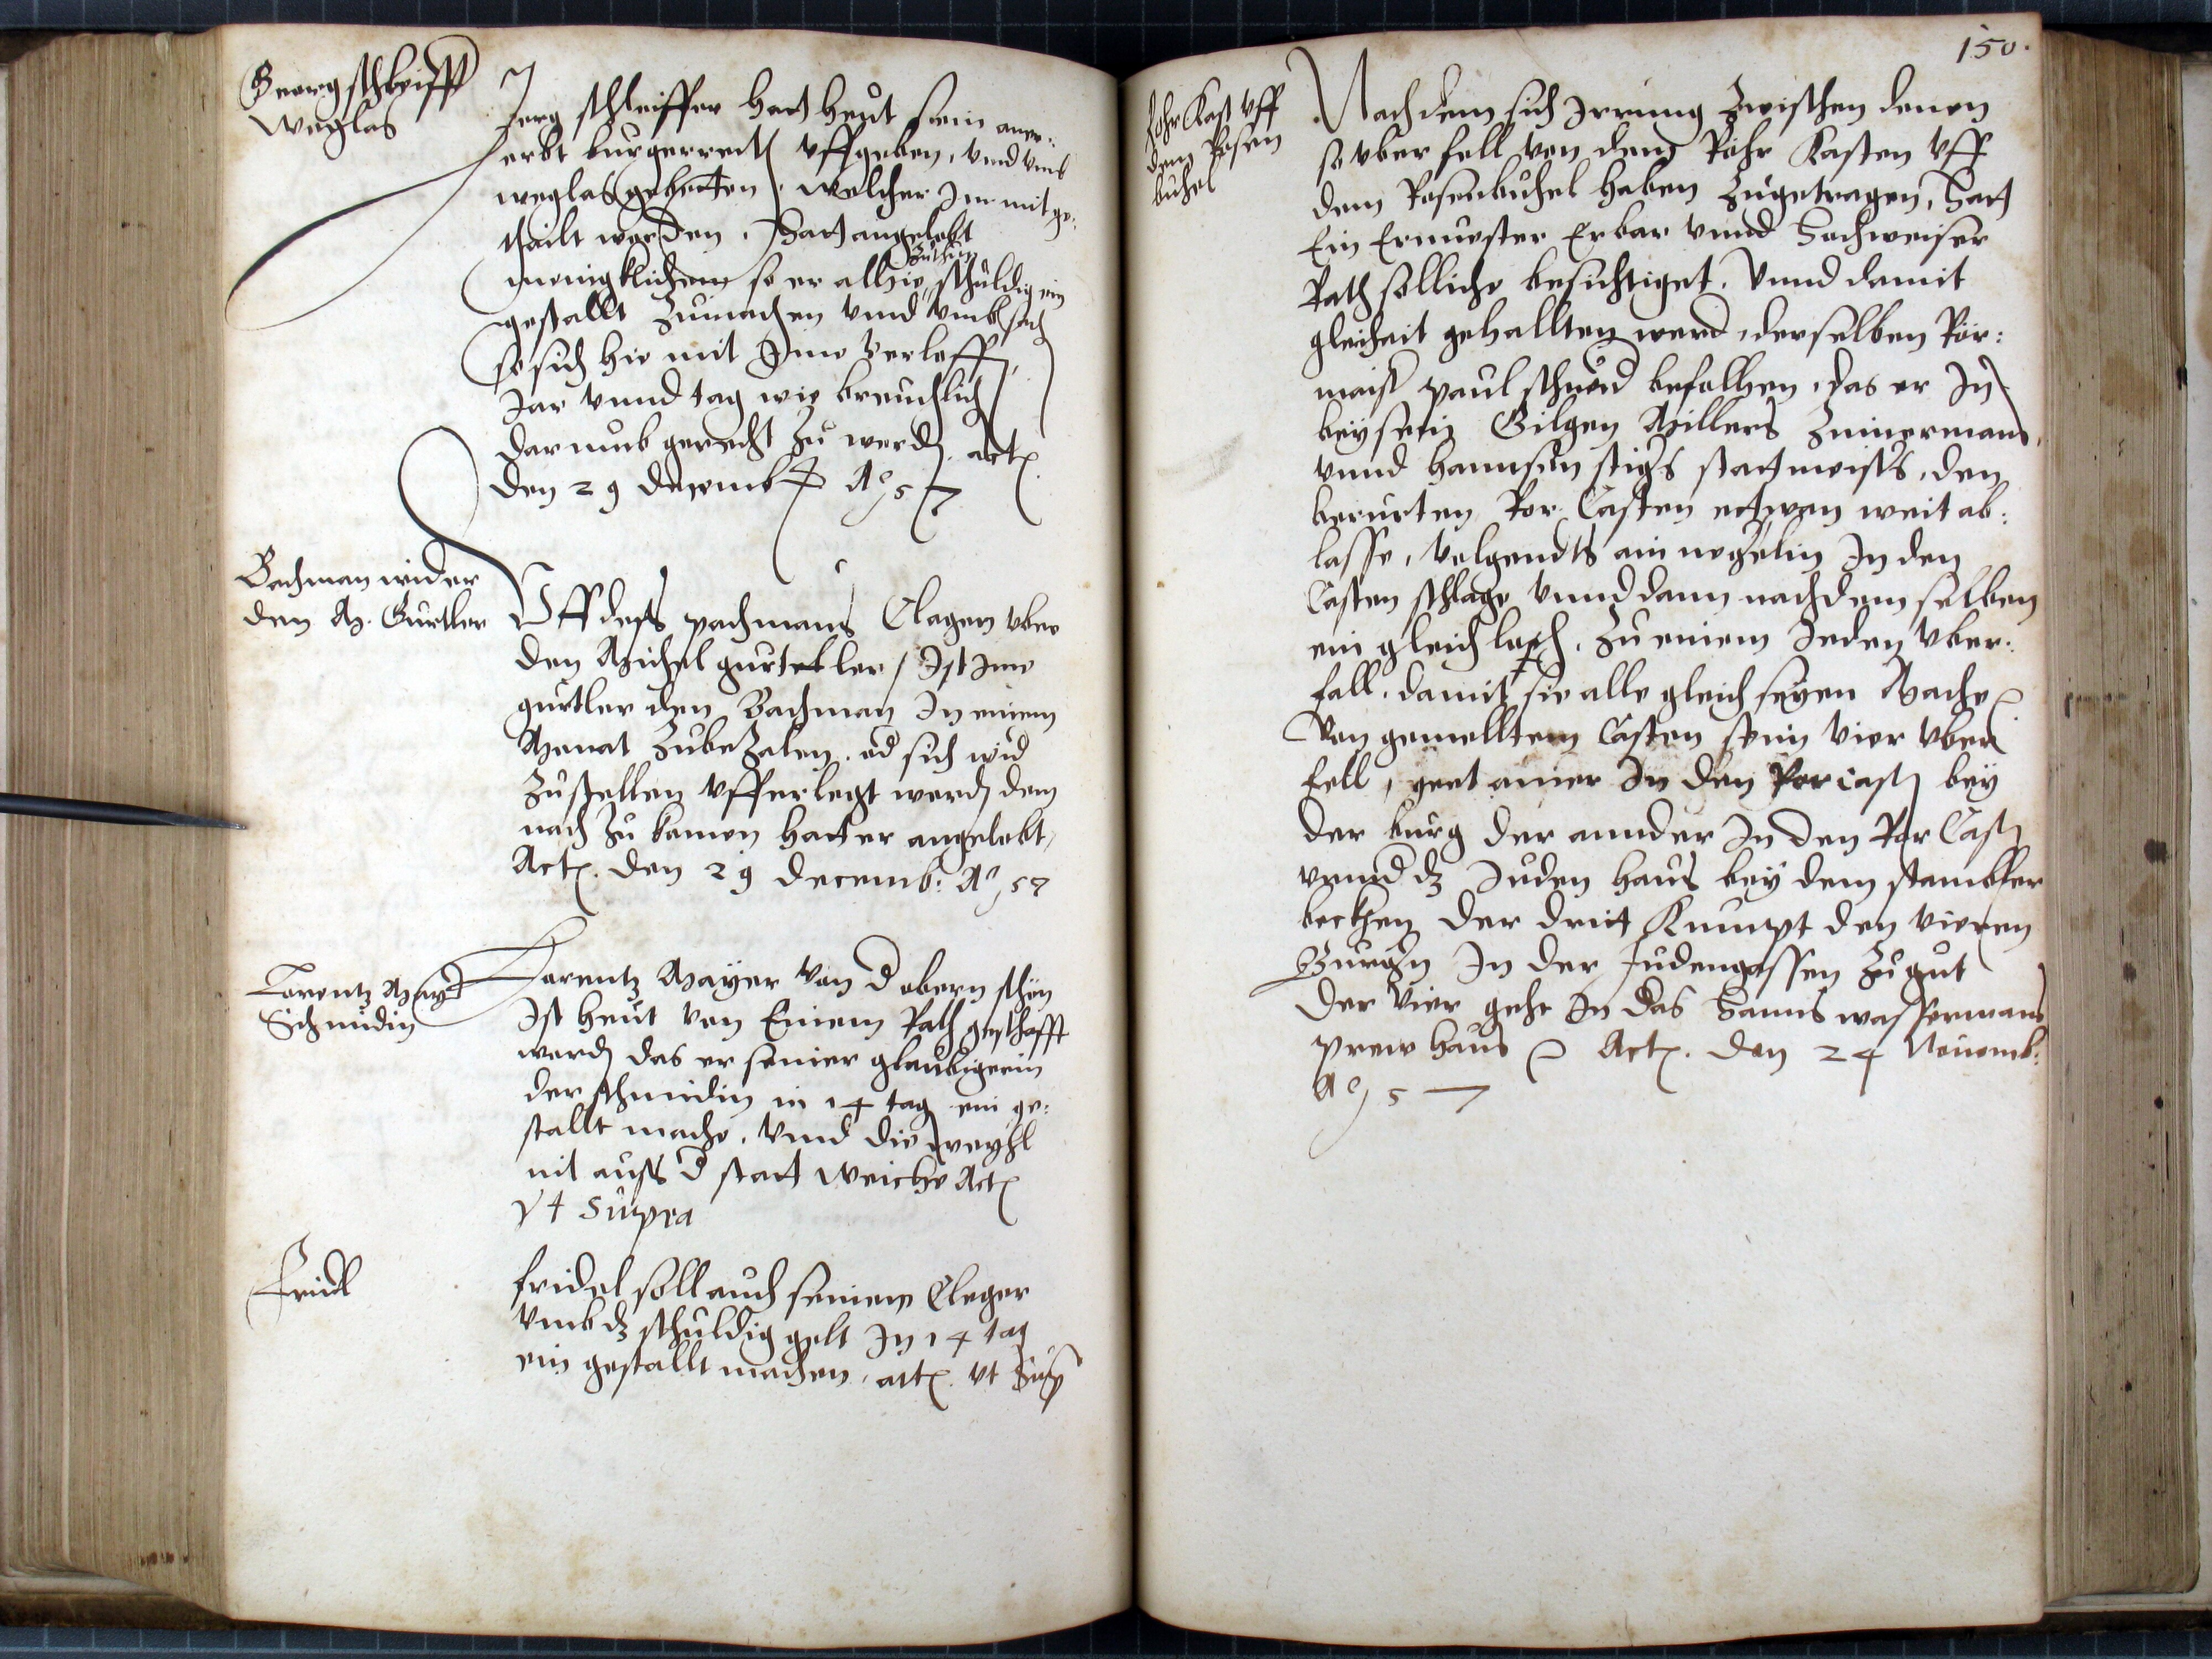 Georg schleiffer
weglas
Jerg schleiffer hat heut sein aner:
erbt burgerrecht uffgeben, vnd vmb
weglas gebetten, welcher Jm mitge:
thailt worden. Hat angelobt
menigklichem so er alhie zuthun schuldig ein
gestallt zumachen vnnd vmb sach
so sich hie mit Jme verloffen,
Jar vnnd tag wie breuchlich
darumb gerecht zu werden. act.
den 29 decemb. Ao 57
Bachman wider
den M. Gurtler
Vff dess pachmans Clagen vber
den Michel gurtler, Jst Jme
gurtler den Bachman Jn einem
Monat zubezalen, od sich wid
zustellen vfferlegt werden dem
nach zu komen hat er angelobt,
Act. den 29 decemb: Ao 57
Lorentz Mayr
Schmidin
Lorentz Mayer von d obern schin
Jst heut von Einem Rath geschafft
werden das er seiner glaubigerin
der schmidin in 14 tag ein ge:
stallt mache. Vnnd die weyhl
nit auss d statt weiche Act
vt supra
Fridl
fridel soll auch seinem Cleger
vmb dz schuldig gelt Jn 14 tag
ein gestallt machen, act. vt sup
150.
Rohr Kast vff
dem Rosen
buhel
Nach dem sich Jrrung zwischen denen
so vberfell von dem Rohr Kasten vff
dem Rosenbuhel haben zugetragen, Hat
Ein Ernuester Erbar vnnd Hochweiser
Rath solliche besichtiget. Vnnd damit
gleicheit gehallten werd, derselben Rör:
maist paul schmid befolhen, das er Jn
beysein Gilgen Millers Zimermans,
vnnd hannsen stigs statmeists, den
berurten Ror Casten etwan weit ab:
lasse, volgendts ain negelin Jn den
Casten schlage vnnd dann nach dem selben
ein gleich loch, zu einem Jeden vber:
fall, damit sie alle gleich seyen Mache
Von gemelltem Casten seien vier vber
fell, geet ainer Jn den Rorcasten bey
der burg der annder Jn den Ror Casten
vnnd dz Juden haus bey dem stambler
becken der drit Kumpt den vieren
Burgern Jn der Judengassen zu gut
Der vier gehe Jn das Hanns wassermans
prew haus Act. den 24 Nouemb:
Ao 57